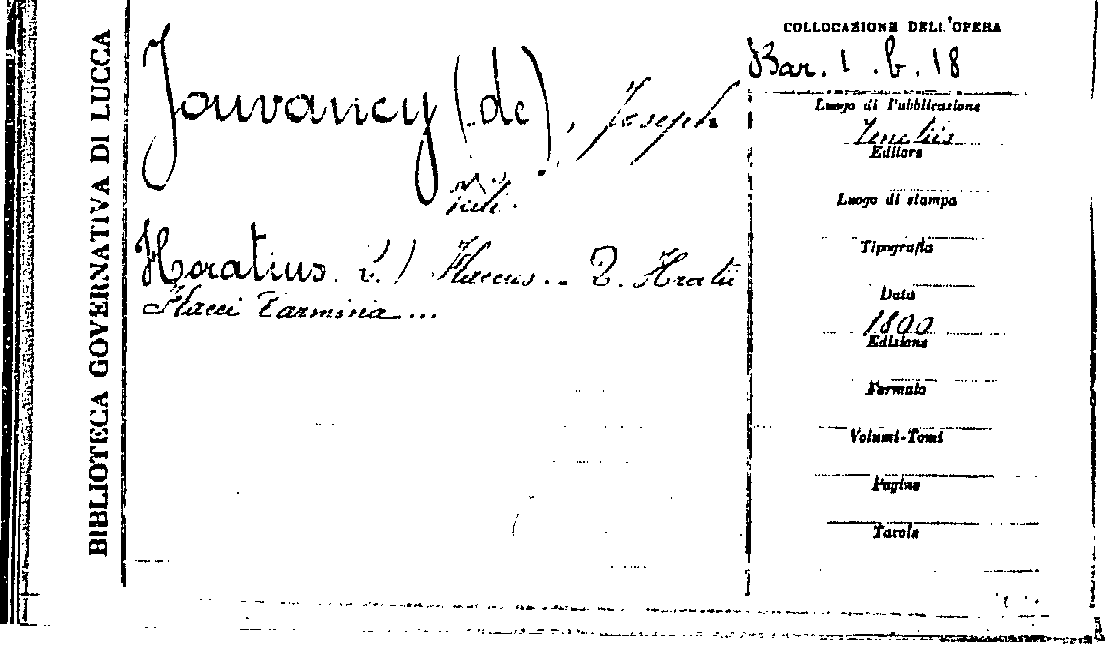 BIBLIOTECA GOVERNATIVA DI LUCCA
Jouvancy (de), Joseph
Vedi.
Horatius. Flaccus... Q. Horatii
Flacci Carmina...
COLLOCAZIONE DELL'OPERA
Bar. 1. b. 18
Luogo di Pubblicazione
Venetiis
Editore
Luogo di stampa
Tipografia
Data
1800
Edizione
Formato
Volumi-Tomi
Pagine
Tavole